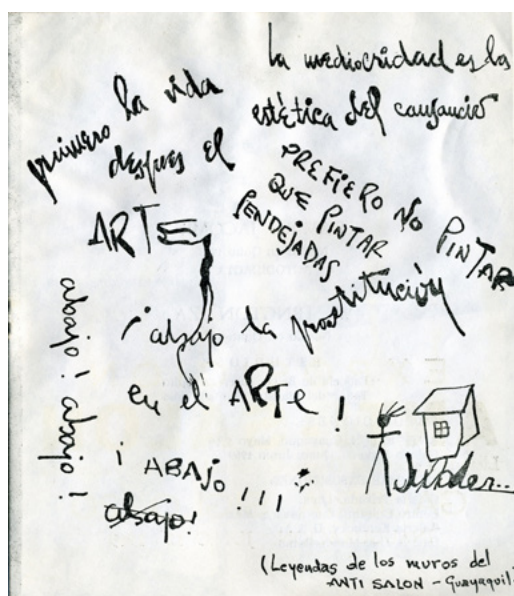 la mediocridad es la
estética del cansancio
primero la vida
despues el
ARTE
PREFIERO NO PINTAR
QUE PINTAR
PENDEJADAS
¡abajo la prostitución
en el ARTe !
abajo! abajo!
¡ ABAJO !!!
abajo!
(Leyendas de los muros del
ANTI SALON - Guayaquil)